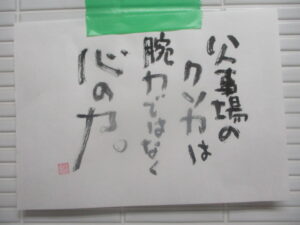 火事場の
クソ力は
腕力ではなく
心の力。